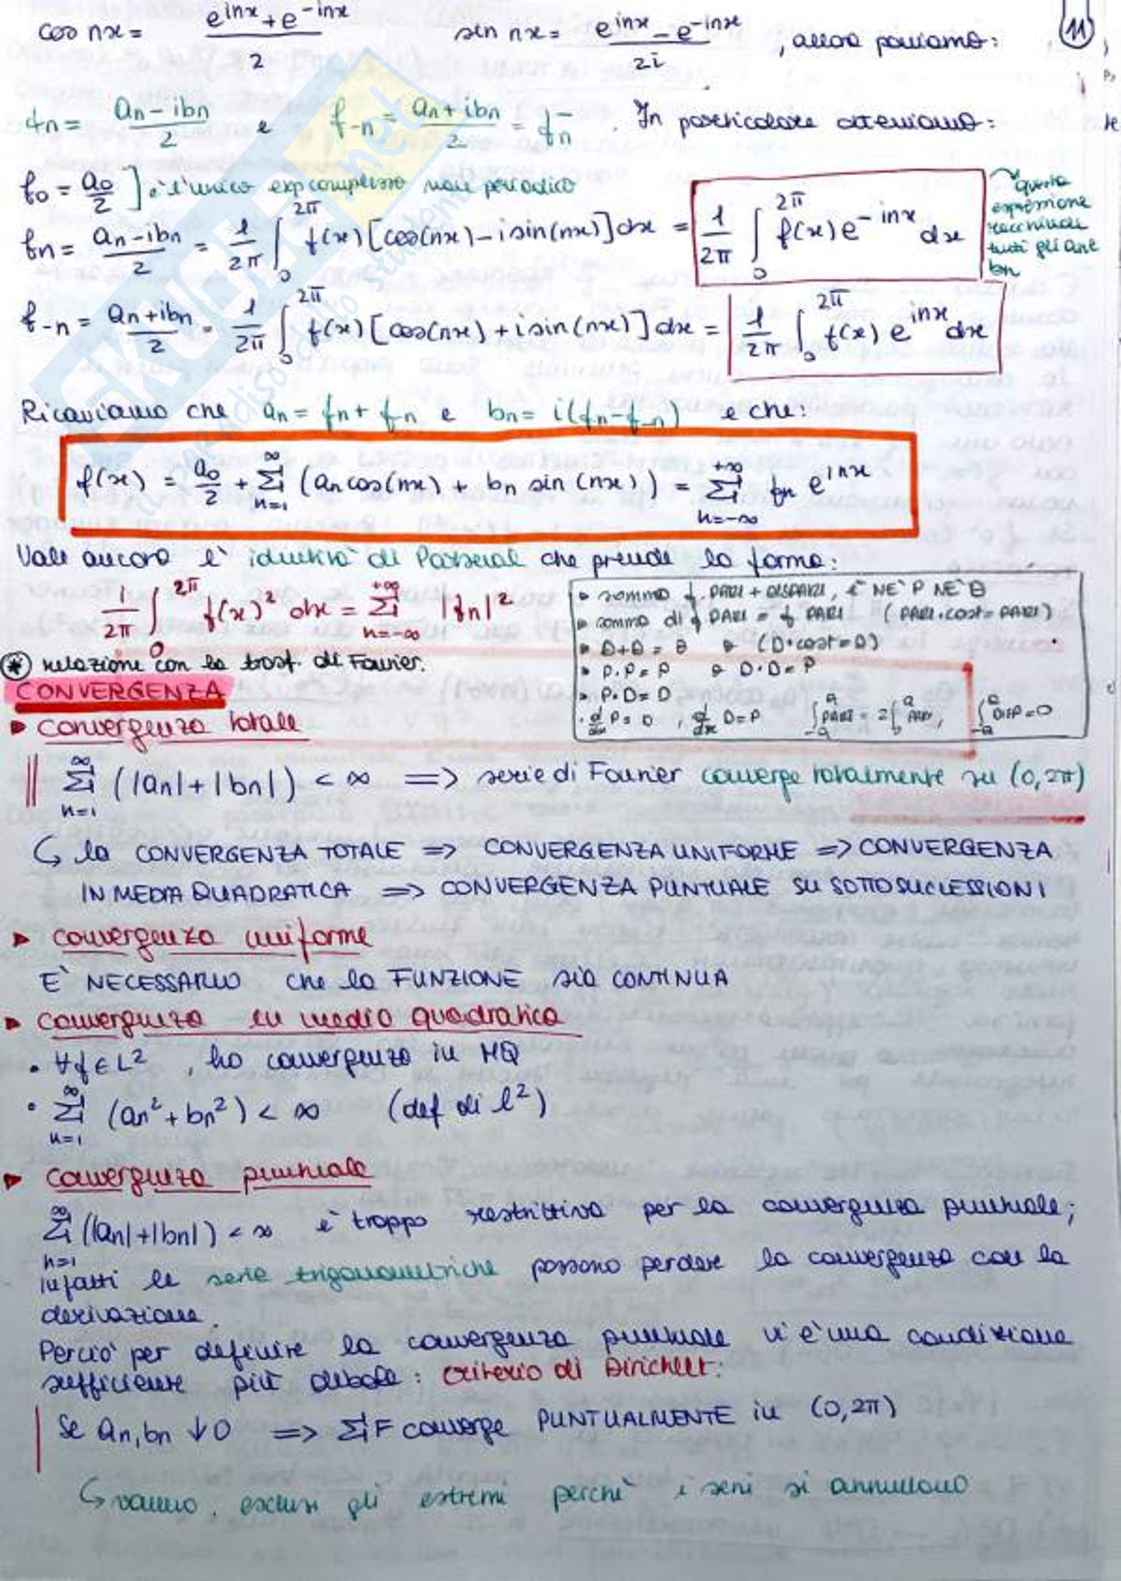 cos nx = (e^{inx} + e^{-inx})/2 sen nx = (e^{inx} - e^{-inx})/2i , allora poniamo: 11
fn = (an - ibn)/2 e f-n = (an + ibn)/2 = f̄n . In particolare otteniamo:
f0 = a0/2 ] è l'unico exp complesso non periodico
fn = (an - ibn)/2 = 1/2π ∫_0^{2π} f(x)[cos(nx) - i sin(nx)]dx = 1/2π ∫_0^{2π} f(x) e^{-inx} dx
questa
espressione
racchiude
tutti gli an e
bn
f-n = (an + ibn)/2 = 1/2π ∫_0^{2π} f(x)[cos(nx) + i sin(nx)]dx = 1/2π ∫_0^{2π} f(x) e^{inx} dx
Ricaviamo che an = fn + f-n e bn = i(fn - f-n) e che:
f(x) = a0/2 + Σ_{n=1}^{∞} (an cos(nx) + bn sin(nx)) = Σ_{n=-∞}^{+∞} fn e^{inx}
Vale ancora l'identità di Parseval che prende la forma:
1/2π ∫_0^{2π} f(x)² dx = Σ_{n=-∞}^{+∞} |fn|²
▸ somma f. PARI + DISPARI, È NE' P NE' D
▸ somma di f PARI = f PARI (PARI·cost = PARI)
▸ D+D = D ▸ (D·cost = D)
▸ P·P = P ▸ D·D = P
▸ P·D = D
· d/dx P = D , d/dx D = P ∫_{-a}^{a} PARI = 2∫_0^a PARI, ∫_{-a}^{a} DISP = 0
(*) relazione con la trasf. di Fourier.
CONVERGENZA
▸ convergenza totale
Σ_{n=1}^{∞} (|an| + |bn|) < ∞ => serie di Fourier converge totalmente su (0,2π)
↳ la CONVERGENZA TOTALE => CONVERGENZA UNIFORME => CONVERGENZA
IN MEDIA QUADRATICA => CONVERGENZA PUNTUALE SU SOTTOSUCCESSIONI
▸ convergenza uniforme
E' NECESSARIO che la FUNZIONE sia CONTINUA
▸ convergenza in media quadratica
• ∀f ∈ L² , ho convergenza in MQ
• Σ_{n=1}^{∞} (an² + bn²) < ∞ (def di l²)
▸ convergenza puntuale
Σ_{n=1}^{∞} (|an| + |bn|) < ∞ è troppo restrittiva per la convergenza puntuale;
infatti le serie trigonometriche possono perdere la convergenza con la
derivazione.
Perciò per definire la convergenza puntuale vi è una condizione
sufficiente più debole: criterio di Dirichlet:
Se an, bn ↓ 0 => ΣF converge PUNTUALMENTE in (0,2π)
↳ vanno esclusi gli estremi perchè i seni si annullano
SKUOLA.net